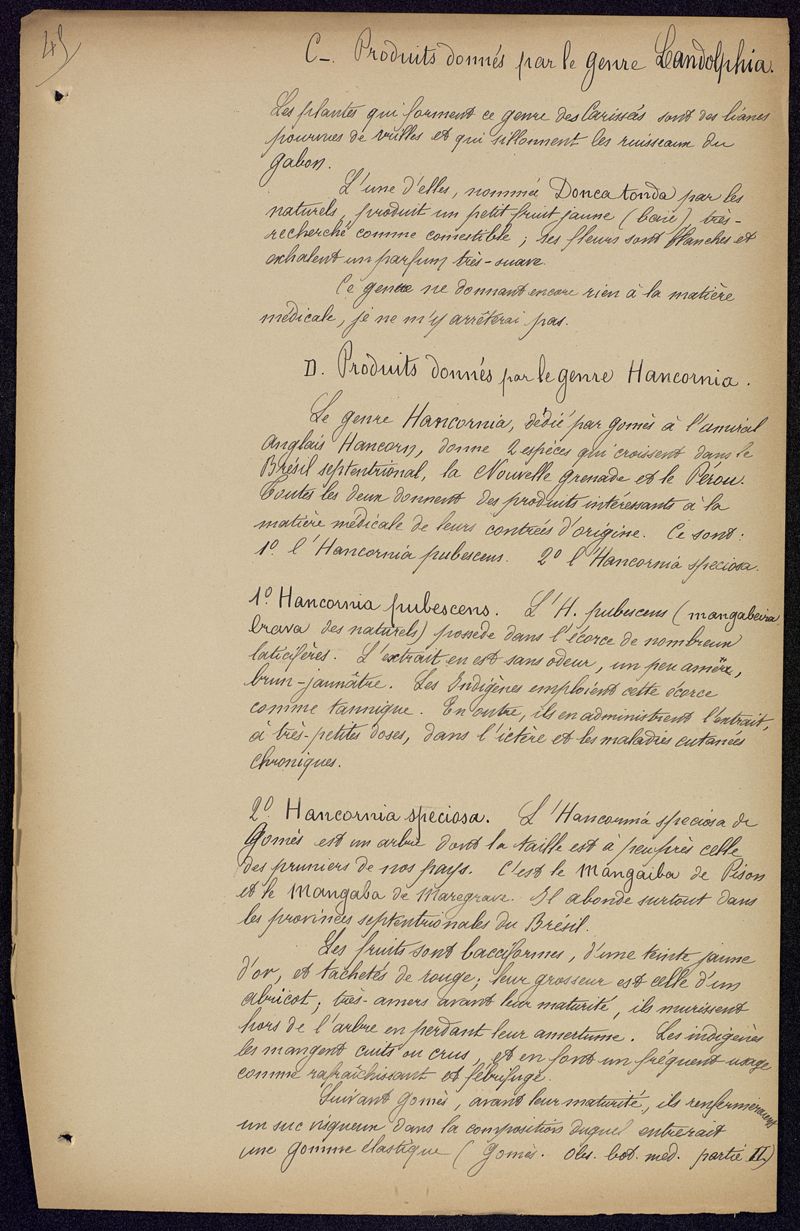 45
C_. Produits donnés par le genre Landolphia.
Les plantes qui forment ce genre des Carissás sont des lianes
pourvues de vrilles et qui sillonnent les ruisseaux du
Gabon.
L'une d'elles, nommée Donca tonda par les
naturels, produit un petit fruit jaune (baie) très-
recherché comme comestible ; ses fleurs sont blanches et
exhalent un parfum très-suave.
Ce genre ne donnant encore rien à la matière
médicale, je ne m'y arrêterai pas.
D. Produits donnés par le genre Hancornia.
Le genre Hancornia, dédié par Gomès à l'amiral
anglais Hancorn, donne 2 espèces qui croissent dans le
Brésil septentrional, la Nouvelle Grenade et le Pérou.
Toutes les deux donnent des produits intéressants à la
matière médicale de leurs contrées d'origine. Ce sont :
1º l'Hancornia pubescens. 2º l'Hancornia speciosa.
1º Hancornia pubescens. L'H. pubescens (mangabeira
brava des naturels) possède dans l'écorce de nombreux
laticifères. L'extrait en est sans odeur, un peu amère,
brun-jaunâtre. Les Indigènes emploient cette écorce
comme tannique. En outre, ils en administrent l'extrait,
à très-petites doses, dans l'ictère et les maladies cutanées
chroniques.
2º Hancornia speciosa. L'Hancornia speciosa de
Gomès est un arbre dont la taille est à peu près celle
des pruniers de nos pays. C'est le Mangaiba de Pison
et le Mangaba de Maregrave. Il abonde surtout dans
les provinces septentrionales du Brésil.
Les fruits sont bacciformes, d'une teinte jaune
d'or, et tachetés de rouge ; leur grosseur est celle d'un
abricot ; très-amers avant leur maturité, ils murissent
hors de l'arbre en perdant leur amertume. Les indigènes
les mangent cuits ou crus, et en font un fréquent usage
comme rafraîchissant et fébrifuge.
Suivant Gomès, avant leur maturité, ils renfermeraient
un suc visqueux dans la composition duquel entrerait
une gomme élastique (Gomès. Obs. bot. med. partie II)